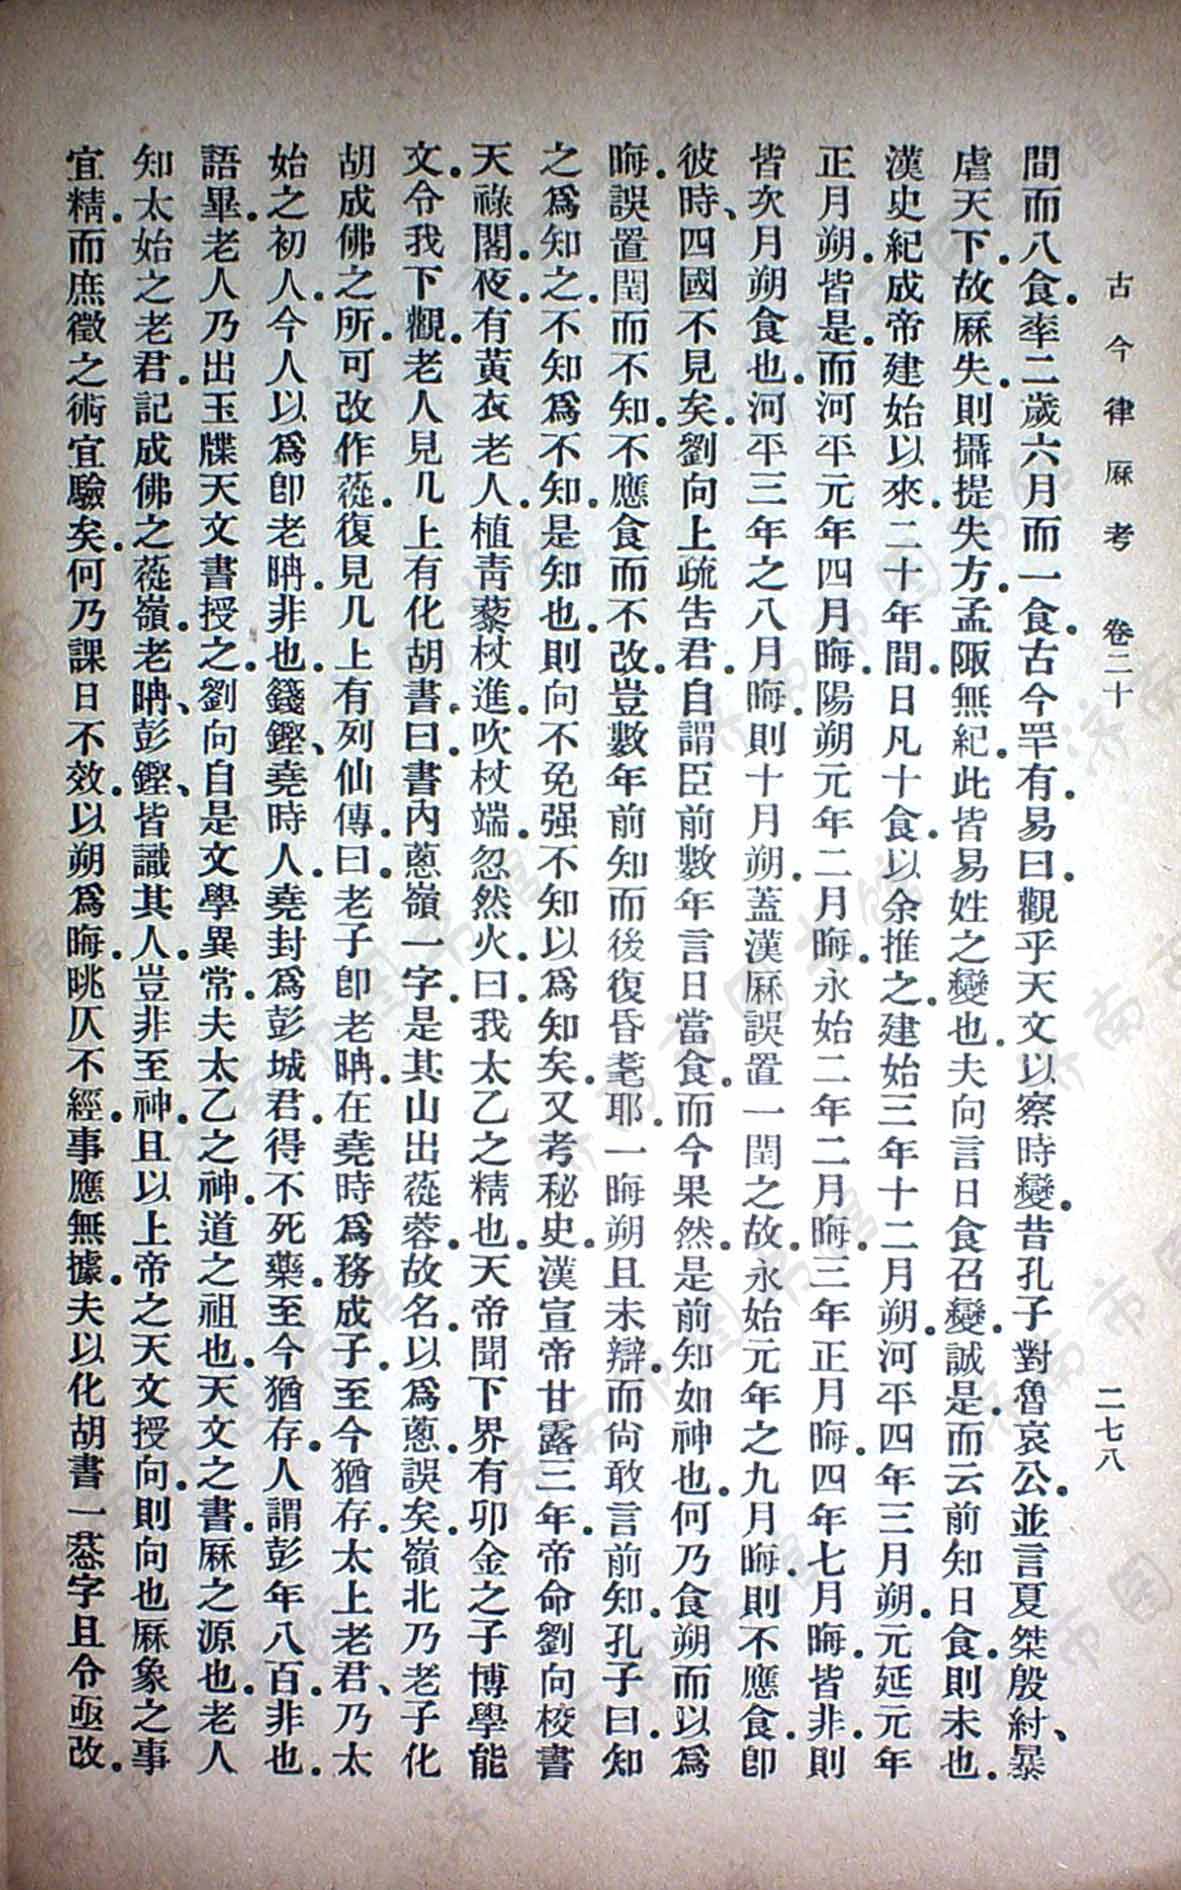 古今律厤考　卷二十　二七八
間而八食。率二歲六月而一食。古今罕有。易曰。觀乎天文以察時變。昔孔子對魯哀公。並言夏桀殷紂、暴
虐天下。故厤失。則攝提失方。孟陬無紀。此皆易姓之變也。夫向言日食召變。誠是。而云前知日食。則未也。
漢史紀成帝建始以來。二十年間。日凡十食。以余推之。建始三年十二月朔。河平四年三月朔。元延元年
正月朔。皆是。而河平元年四月晦。陽朔元年二月晦。永始二年二月晦。三年正月晦。四年七月晦。皆非。則
皆次月朔食也。河平三年之八月晦。則十月朔。蓋漢厤誤置一閏之故。永始元年之九月晦。則不應食。卽
彼時、四國不見矣。劉向上疏告君。自謂臣前數年言日當食。而今果然。是前知如神也。何乃食朔而以爲
晦。誤置閏而不知。不應食而不改。豈數年前知而後復昏耄耶。一晦朔且未辯。而尙敢言前知。孔子曰。知
之爲知之。不知爲不知。是知也。則向不免强不知以爲知矣。又考秘史。漢宣帝甘露三年。帝命劉向校書
天祿閣。夜。有黃衣老人。植靑藜杖進。吹杖端。忽然火。曰。我太乙之精也。天帝聞下界有卯金之子博學能
文。令我下觀。老人見几上有化胡書。曰。書內蔥嶺一字。是其山出蓯蓉。故名。以爲蔥。誤矣。嶺北乃老子化
胡成佛之所。可改作蓯。復見几上有列仙傳。曰。老子卽老聃。在堯時爲務成子。至今猶存。太上老君、乃太
始之初人。今人以爲卽老聃。非也。錢鏗、堯時人。堯封爲彭城君。得不死藥。至今猶存。人謂彭年八百。非也。
語畢。老人乃出玉牒天文書授之。劉向自是文學異常。夫太乙之神。道之祖也。天文之書。厤之源也。老人
知太始之老君。記成佛之蓯嶺。老聃、彭鏗、皆識其人。豈非至神。且以上帝之天文授向。則向也厤象之事
宜精。而庶徵之術宜驗矣。何乃課日不效。以朔爲晦。眺仄不經。事應無據。夫以化胡書一蔥字且令亟改。